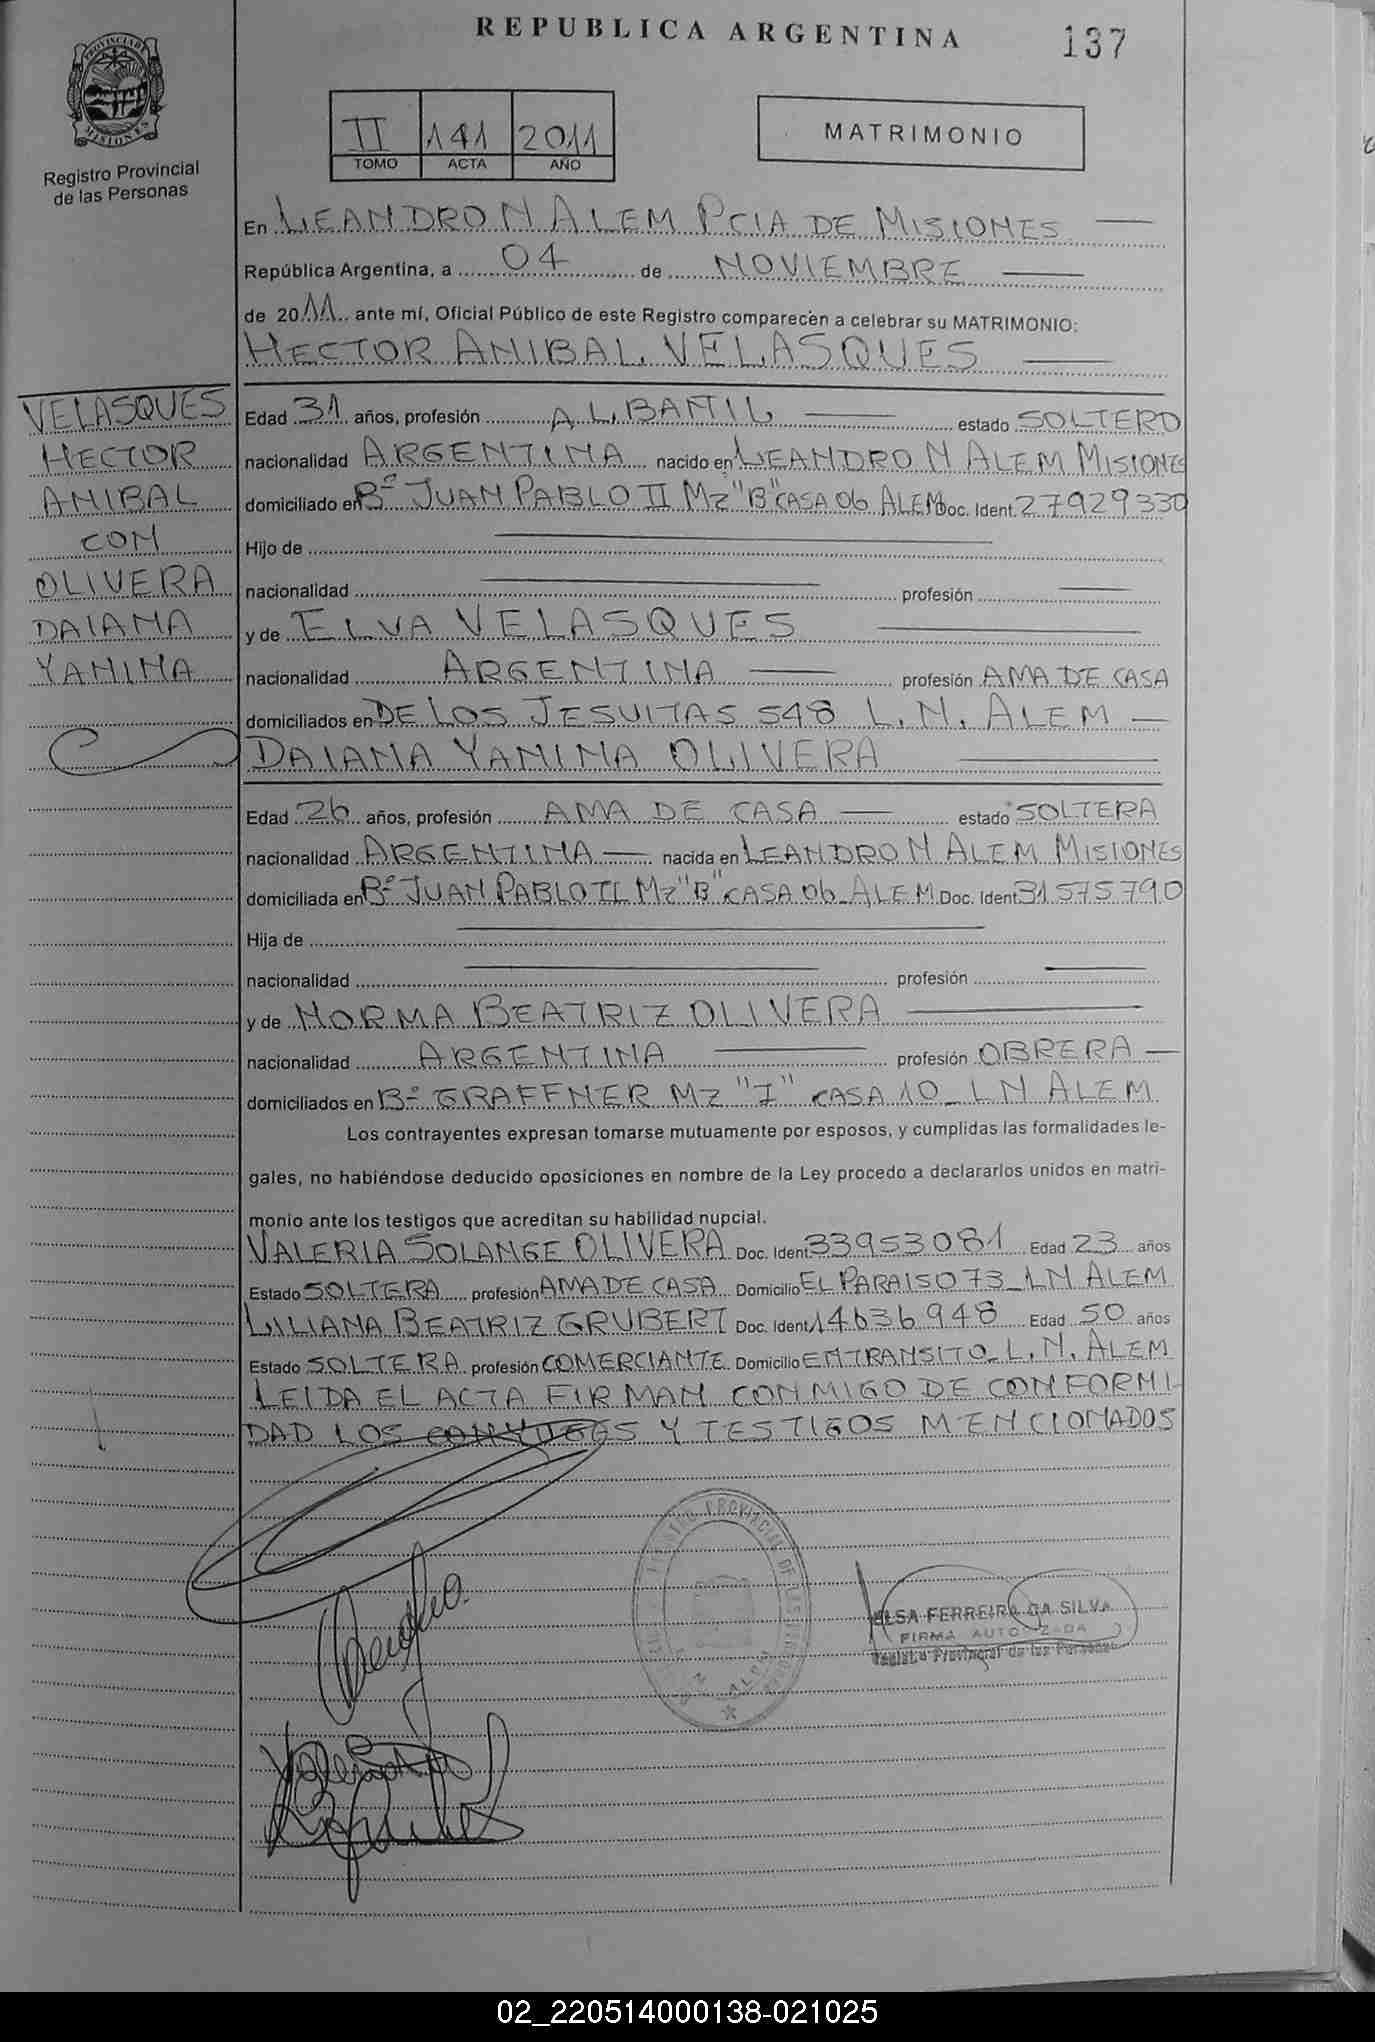 REPUBLICA ARGENTINA
137
PROVINCIA DE MISIONES
Registro Provincial
de las Personas
II 141 2011
TOMO ACTA AÑO
MATRIMONIO
En LEANDRO N ALEM PCIA DE MISIONES
República Argentina, a 04 de NOVIEMBRE
de 2011 ante mí, Oficial Público de este Registro comparecen a celebrar su MATRIMONIO:
HECTOR ANIBAL VELASQUES
VELASQUES
HECTOR
ANIBAL
CON
OLIVERA
DAIANA
YANINA
Edad 31 años, profesión ALBANIL estado SOLTERO
nacionalidad ARGENTINA nacido en LEANDRO N ALEM MISIONES
domiciliado en Bº JUAN PABLO II Mz "B" CASA 06 ALEM Doc. Ident. 27929330
Hijo de
nacionalidad profesión
y de ELVA VELASQUES
nacionalidad ARGENTINA profesión AMA DE CASA
domiciliados en DE LOS JESUITAS 548 L.N. ALEM
DAIANA YANINA OLIVERA
Edad 26 años, profesión AMA DE CASA estado SOLTERA
nacionalidad ARGENTINA nacida en LEANDRO N ALEM MISIONES
domiciliada en Bº JUAN PABLO II Mz "B" CASA 06 ALEM Doc. Ident 31575790
Hija de
nacionalidad profesión
y de NORMA BEATRIZ OLIVERA
nacionalidad ARGENTINA profesión OBRERA
domiciliados en Bº GRAFFNER Mz "I" CASA 10_ LN ALEM
Los contrayentes expresan tomarse mutuamente por esposos, y cumplidas las formalidades le-
gales, no habiéndose deducido oposiciones en nombre de la Ley procedo a declararlos unidos en matri-
monio ante los testigos que acreditan su habilidad nupcial.
VALERIA SOLANGE OLIVERA Doc. Ident 33953081 Edad 23 años
Estado SOLTERA profesión AMA DE CASA Domicilio EL PARAISO 73_ LN ALEM
LILIANA BEATRIZ GRUBERT Doc. Ident 14636948 Edad 50 años
Estado SOLTERA profesión COMERCIANTE Domicilio EN TRANSITO_ L.N. ALEM
LEIDA EL ACTA FIRMAN CONMIGO DE CONFORMI-
DAD LOS CONYUGES Y TESTIGOS MENCIONADOS
ELSA FERREIRA DA SILVA
FIRMA AUTORIZADA
Registro Provincial de las Personas
02_220514000138-021025